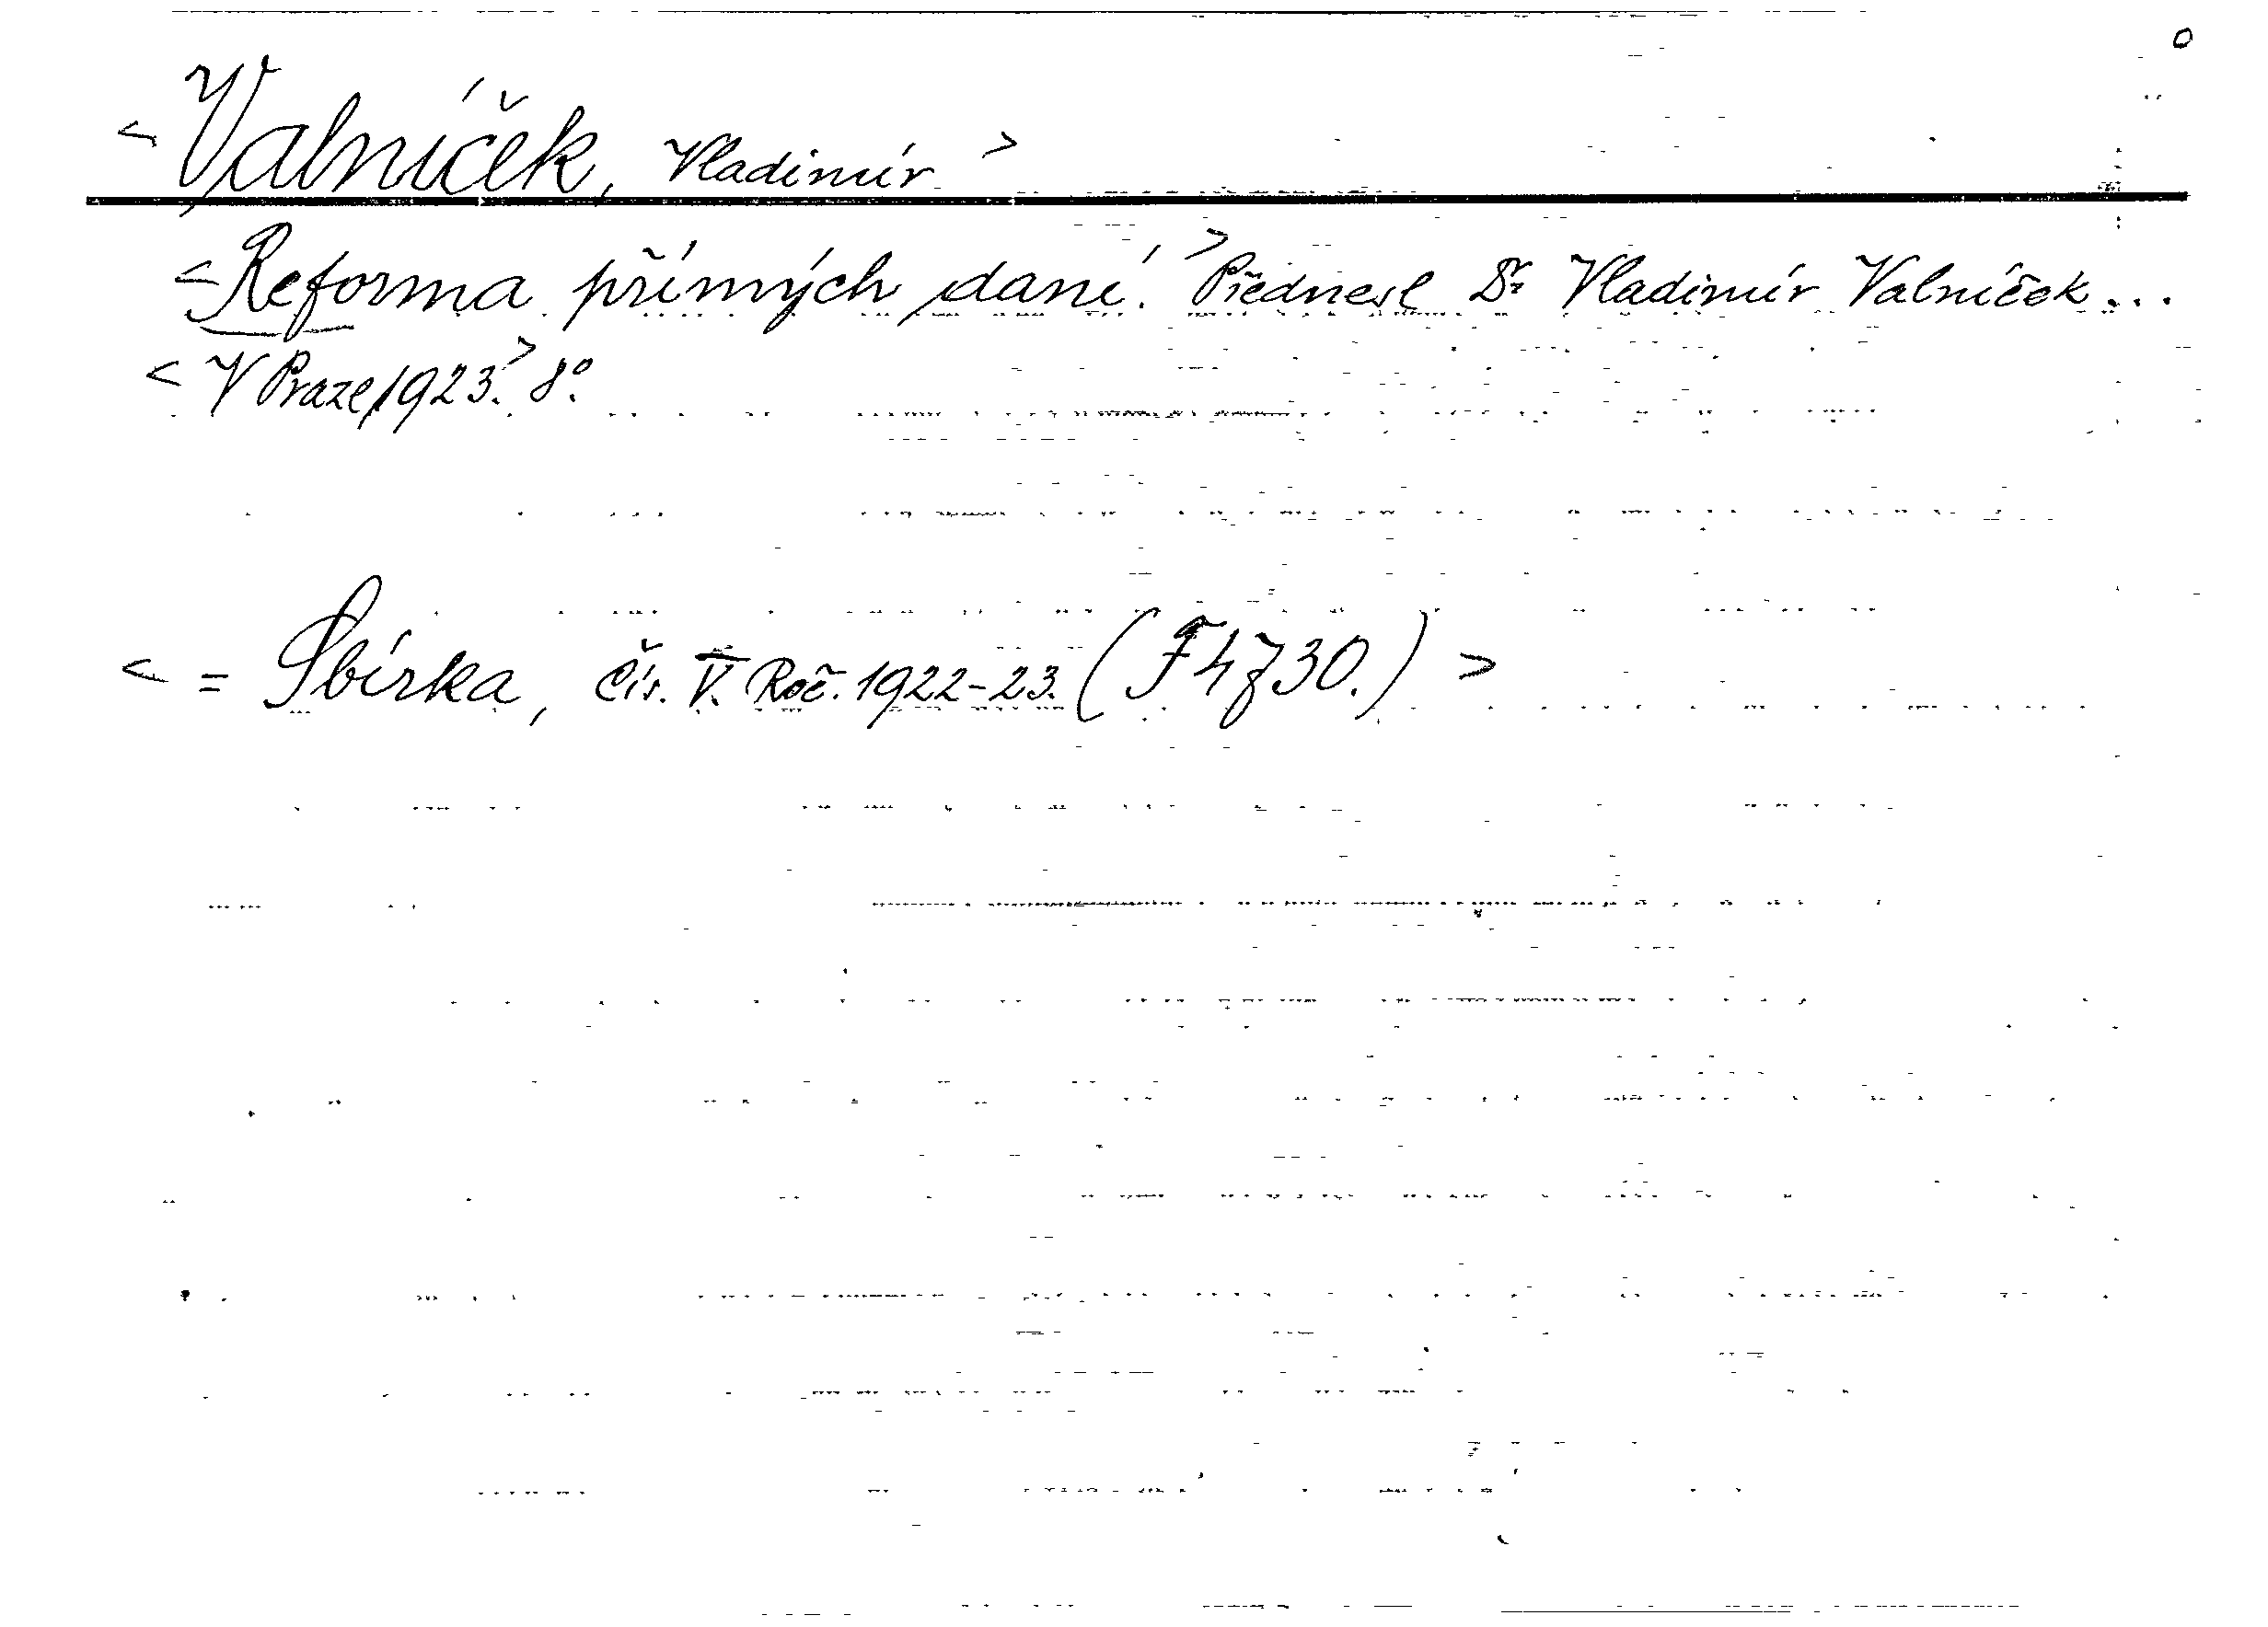 o
< Valníček, Vladimír >
< Reforma přímých daní. > Přednesl Dr. Vladimír Valníček...
< V Praze, 1923. > 8°.
< = Sbírka, čís. V. Roč. 1922-23. ( >